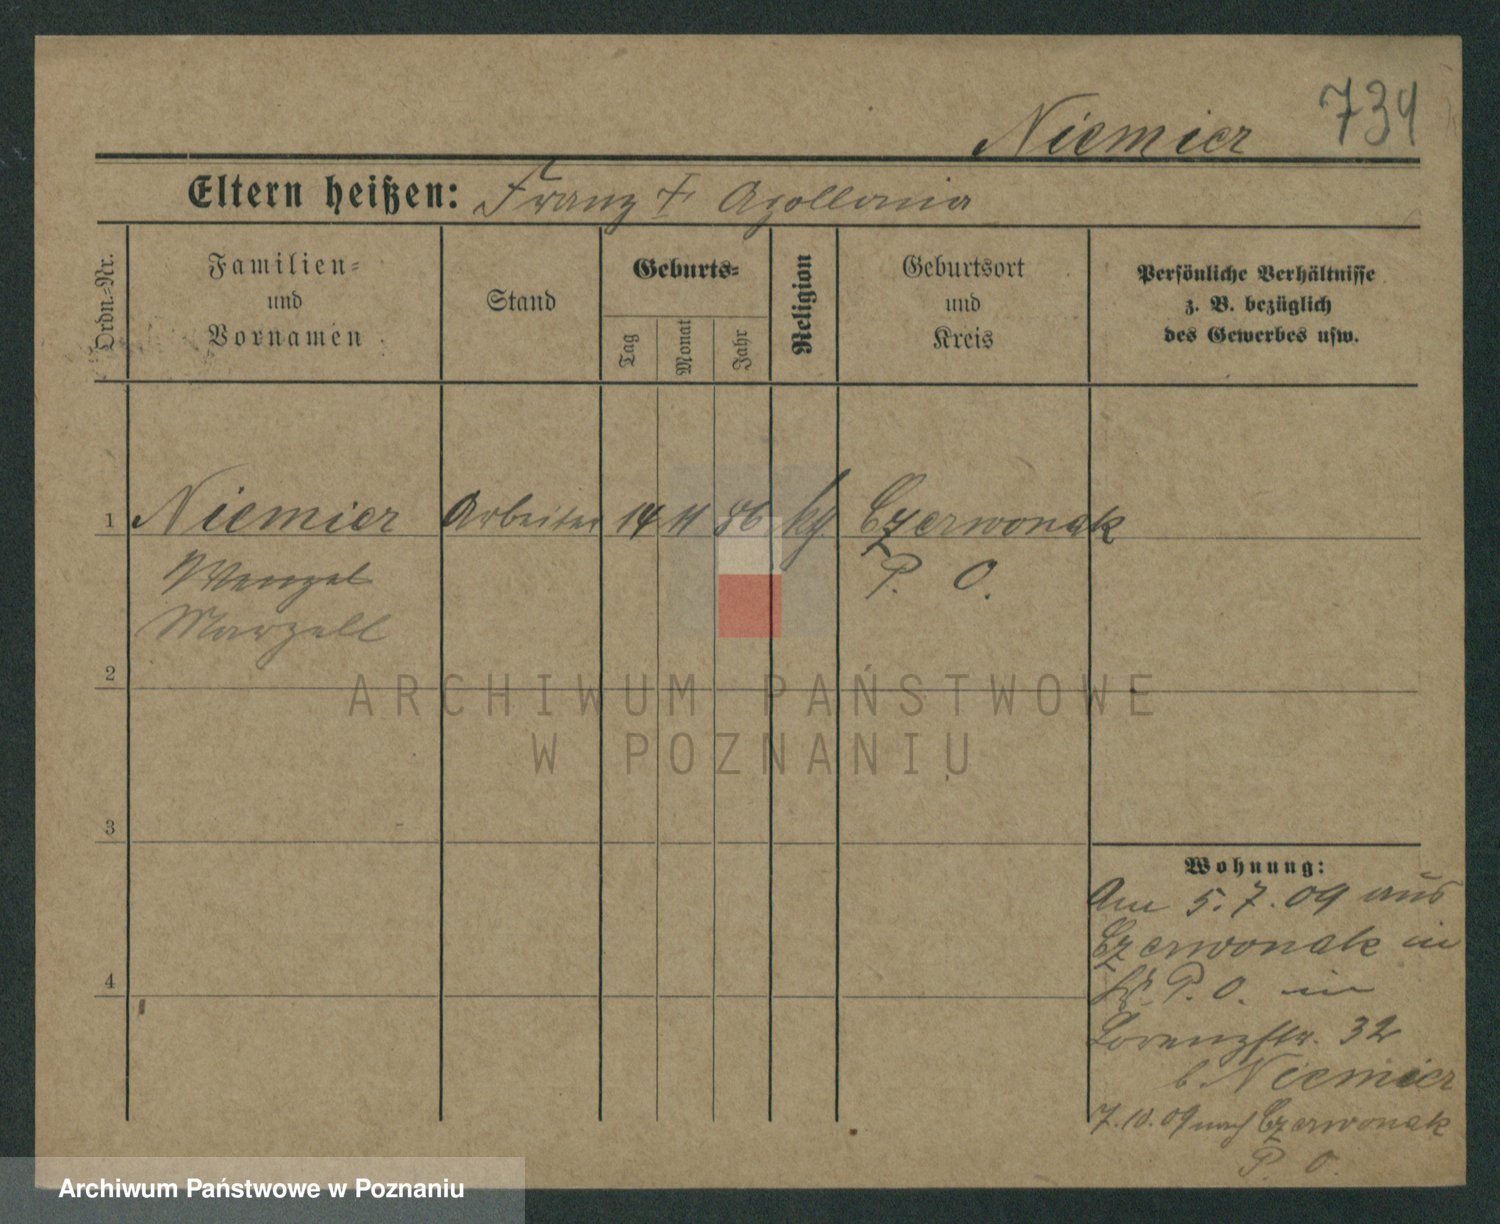 734
Niemier
Eltern heißen: Franz † Apollonia
Ordn.-Nr.
Familien-
und
Vornamen
Stand
Geburts-
Tag
Monat
Jahr
Religion
Geburtsort
und
Kreis
Persönliche Verhältnisse
z. B. bezüglich
des Gewerbes usw.
1 Niemier Arbeiter 14 11 86 kg. Czerwonak
Wenzel P. O.
Marzell
2
ARCHIWUM PAŃSTWOWE
W POZNANIU
3
Wohnung:
Am 5.7.09 aus
Czerwonak in
P. O. in
4
Lorenzstr. 32
b Niemier
7.10.09 nach Czerwonak
P. O.
Archiwum Państwowe w Poznaniu